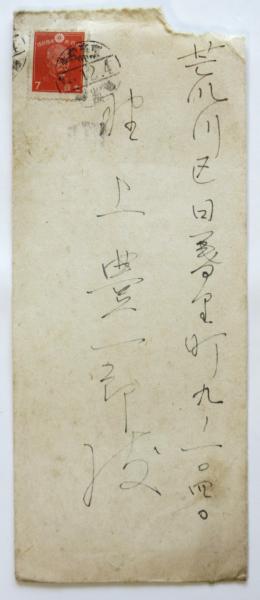 荒川区日暮里町九ノ一〇四〇
野上豊一郎様
7